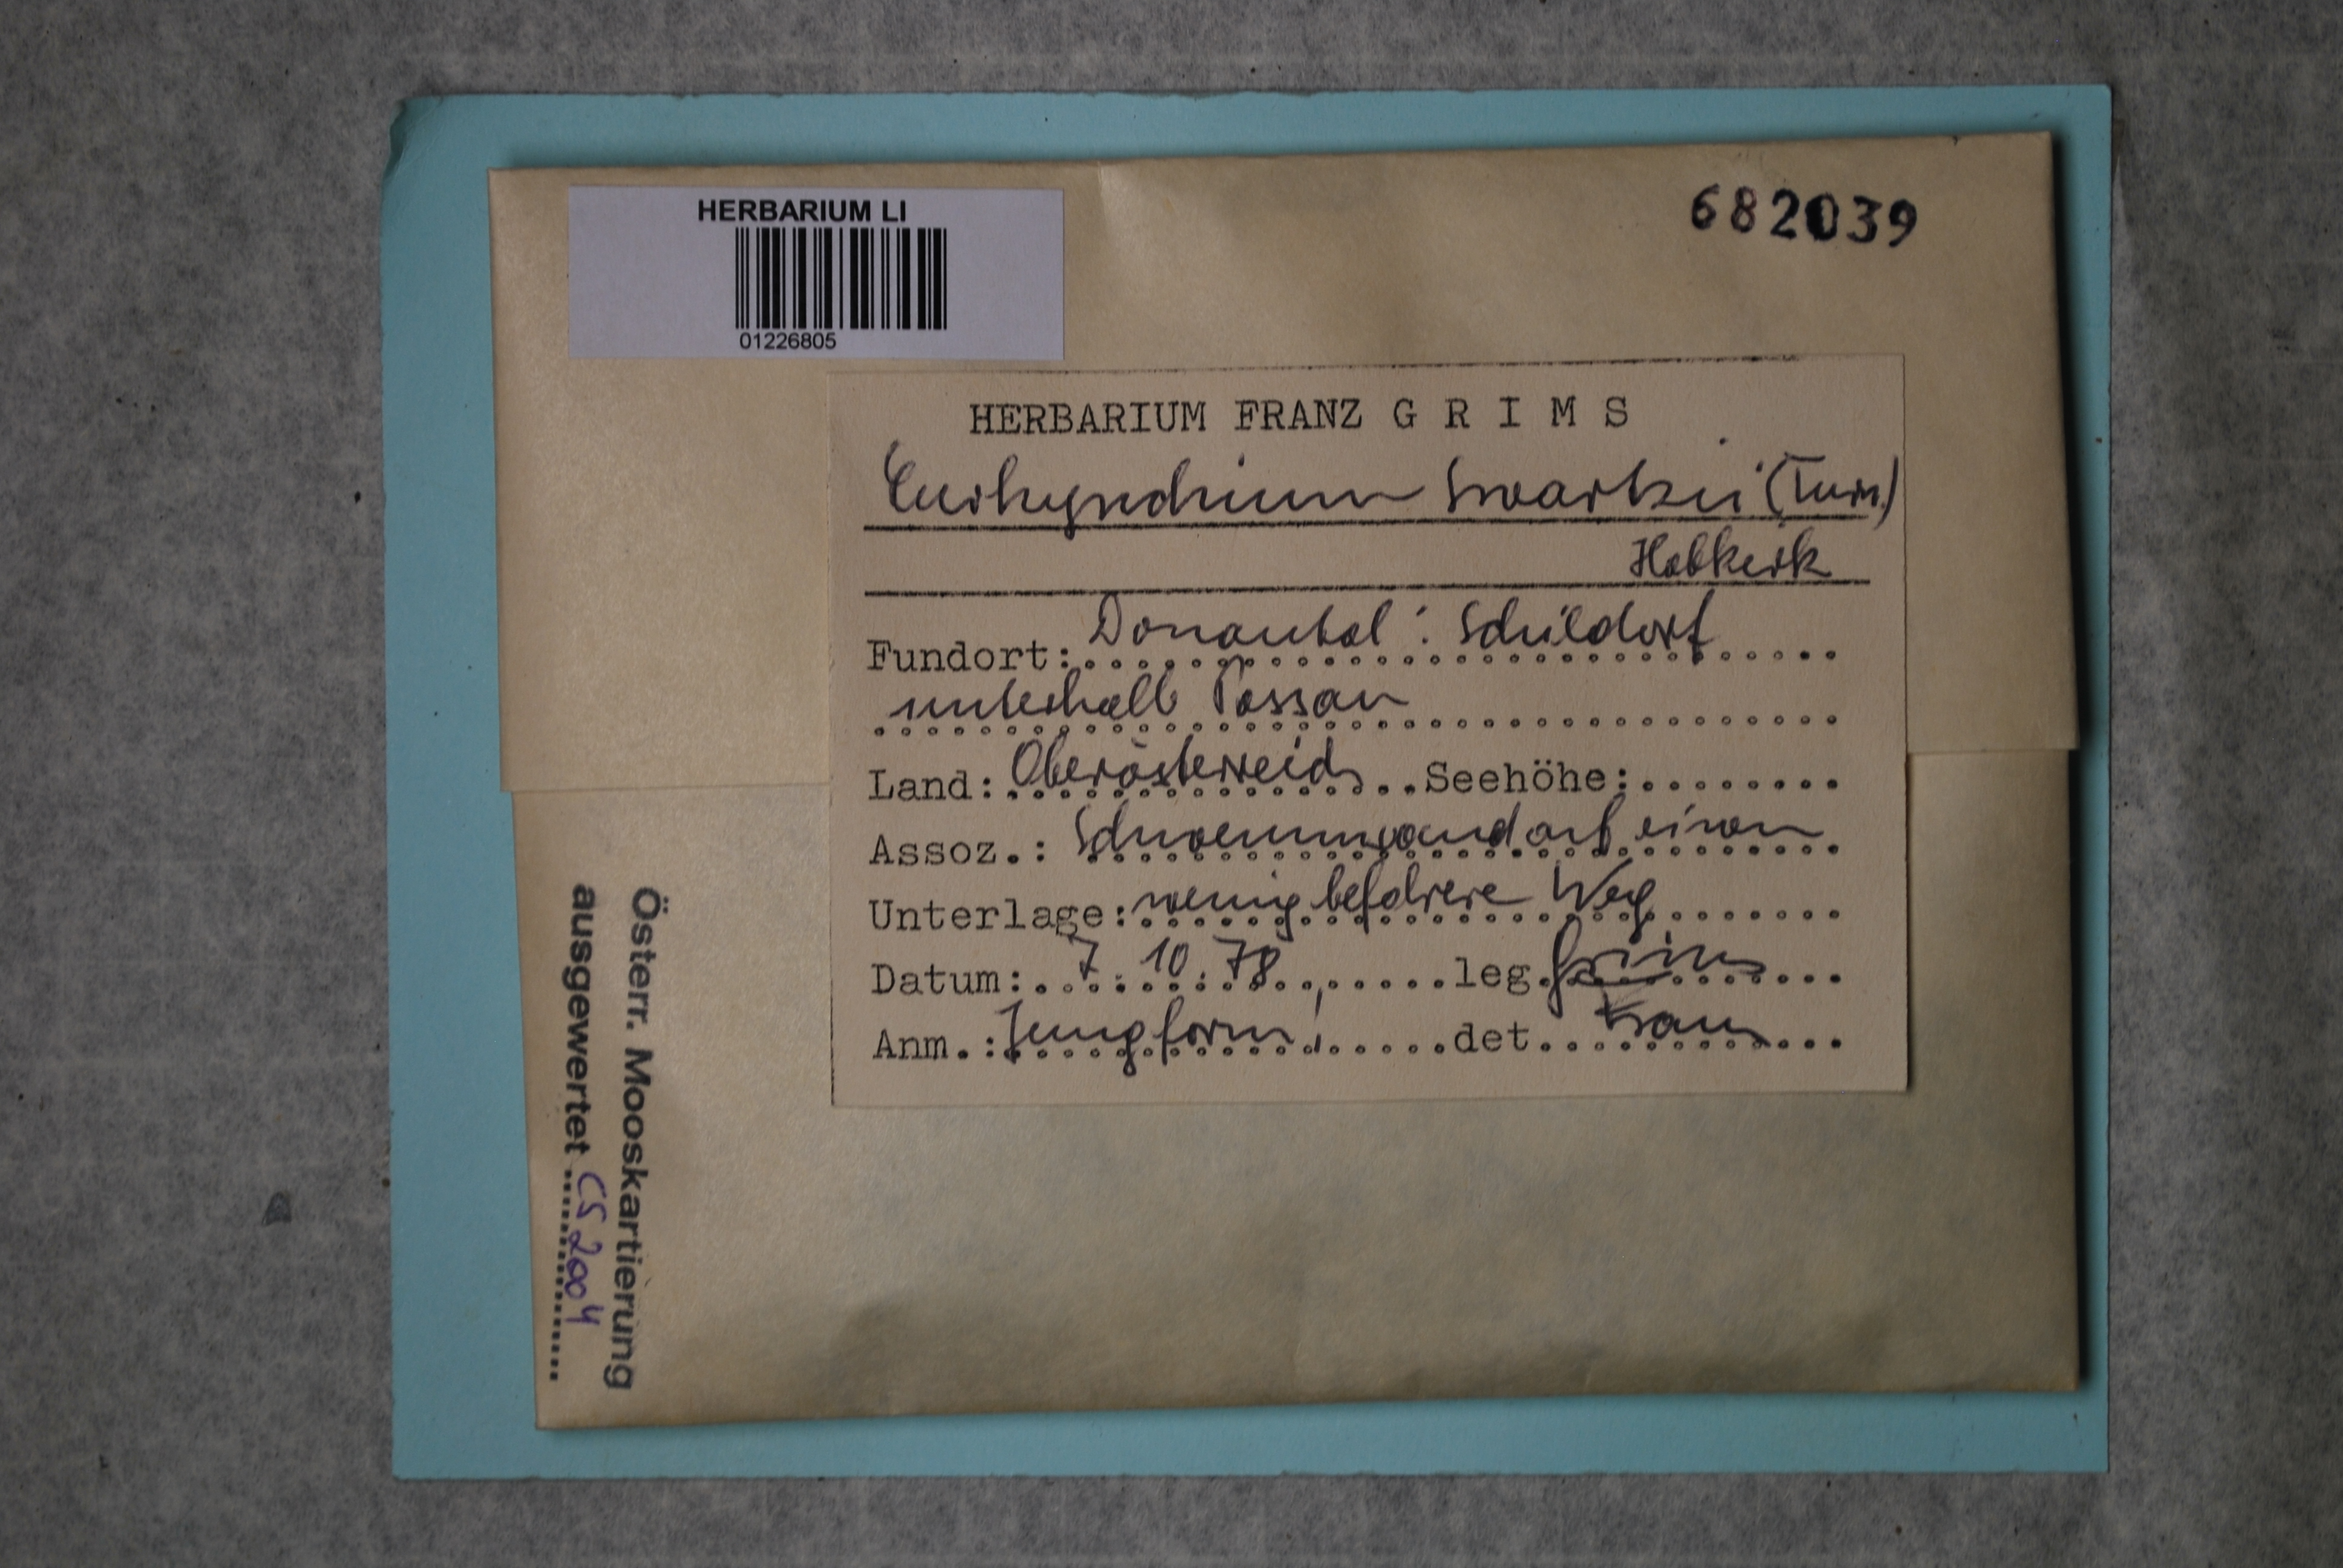 HERBARIUM LI
01226805
682039
HERBARIUM FRANZ G R I M S
Eurhynchium swartzii (Turn.)
Hobkirk
Fundort: Donautal: Schildorf
unterhalb Passau
Land: Oberösterreich ..Seehöhe:........
Assoz.: Schwemmsand auf einem
Unterlage: wenig befahrene Weg
Datum: 7. 10. 78 leg. Grims
Anm.: Jungform! det.
Österr. Mooskartierung
ausgewertet CS 2004